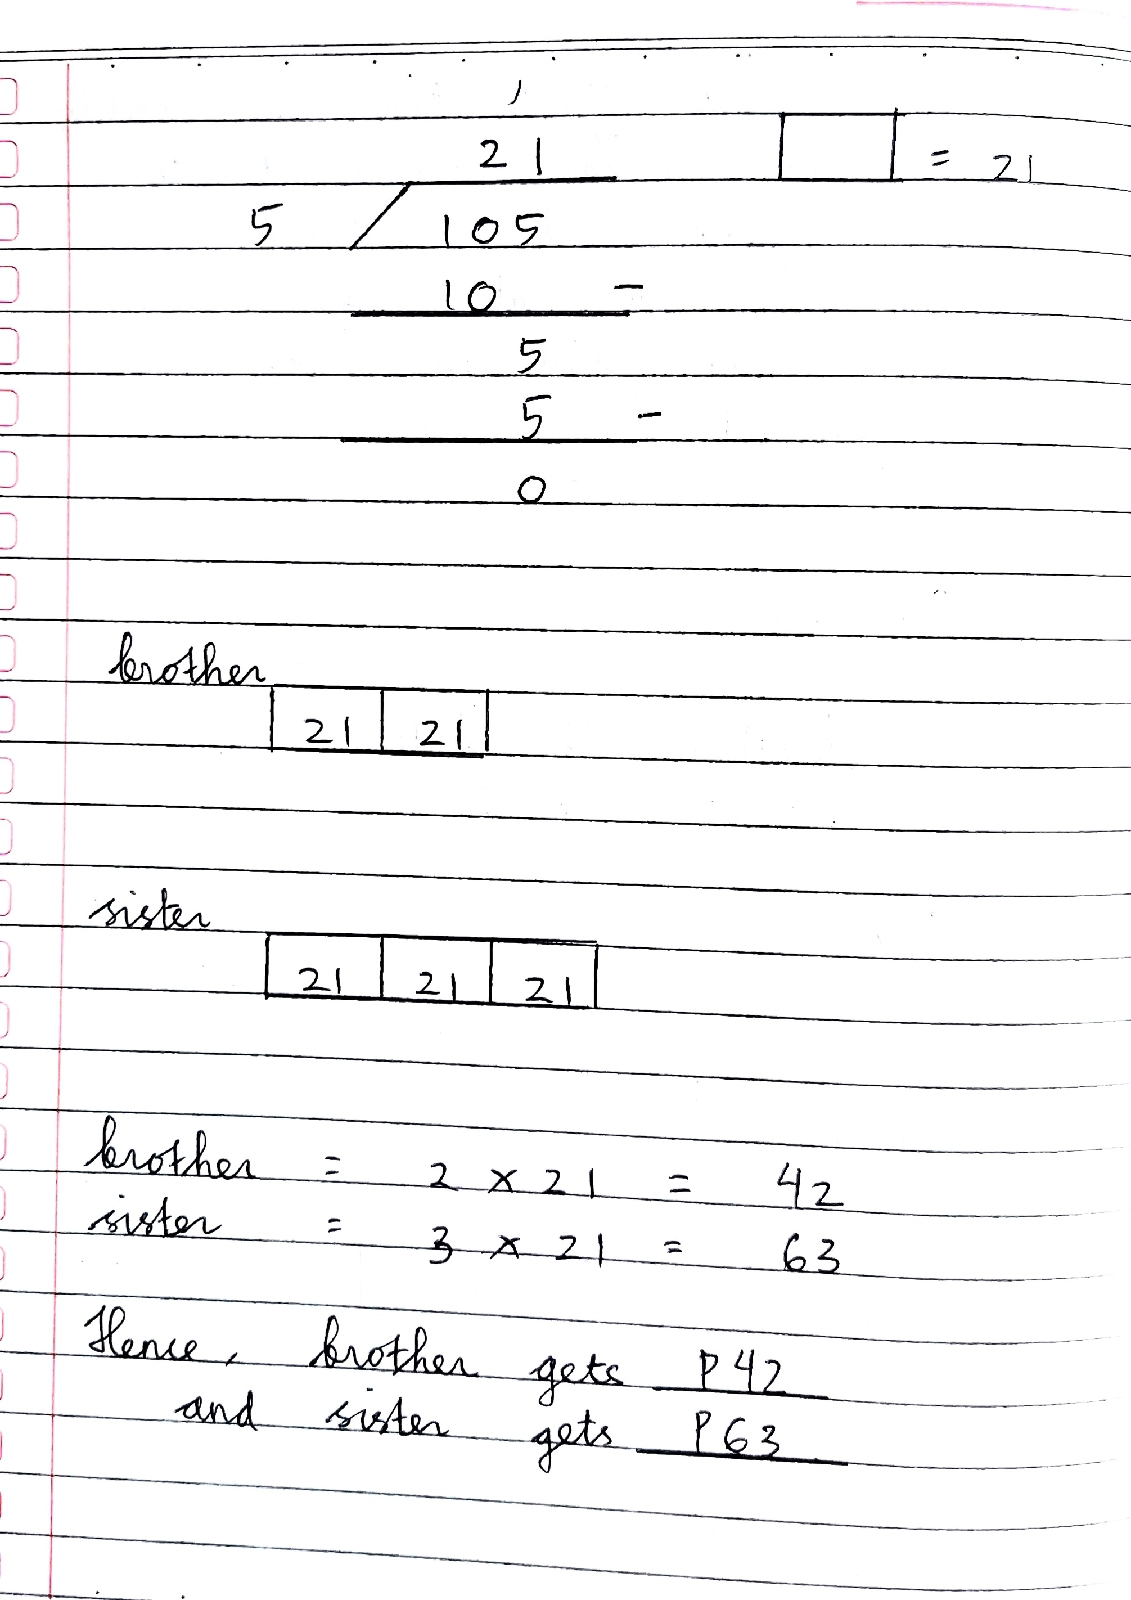 21 = 21
5 105
10 -
5
5 -
0
brother
21 21
sister
21 21 21
brother = 2 x 21 = 42
sister = 3 x 21 = 63
Hence, brother gets P42
and sister gets P63